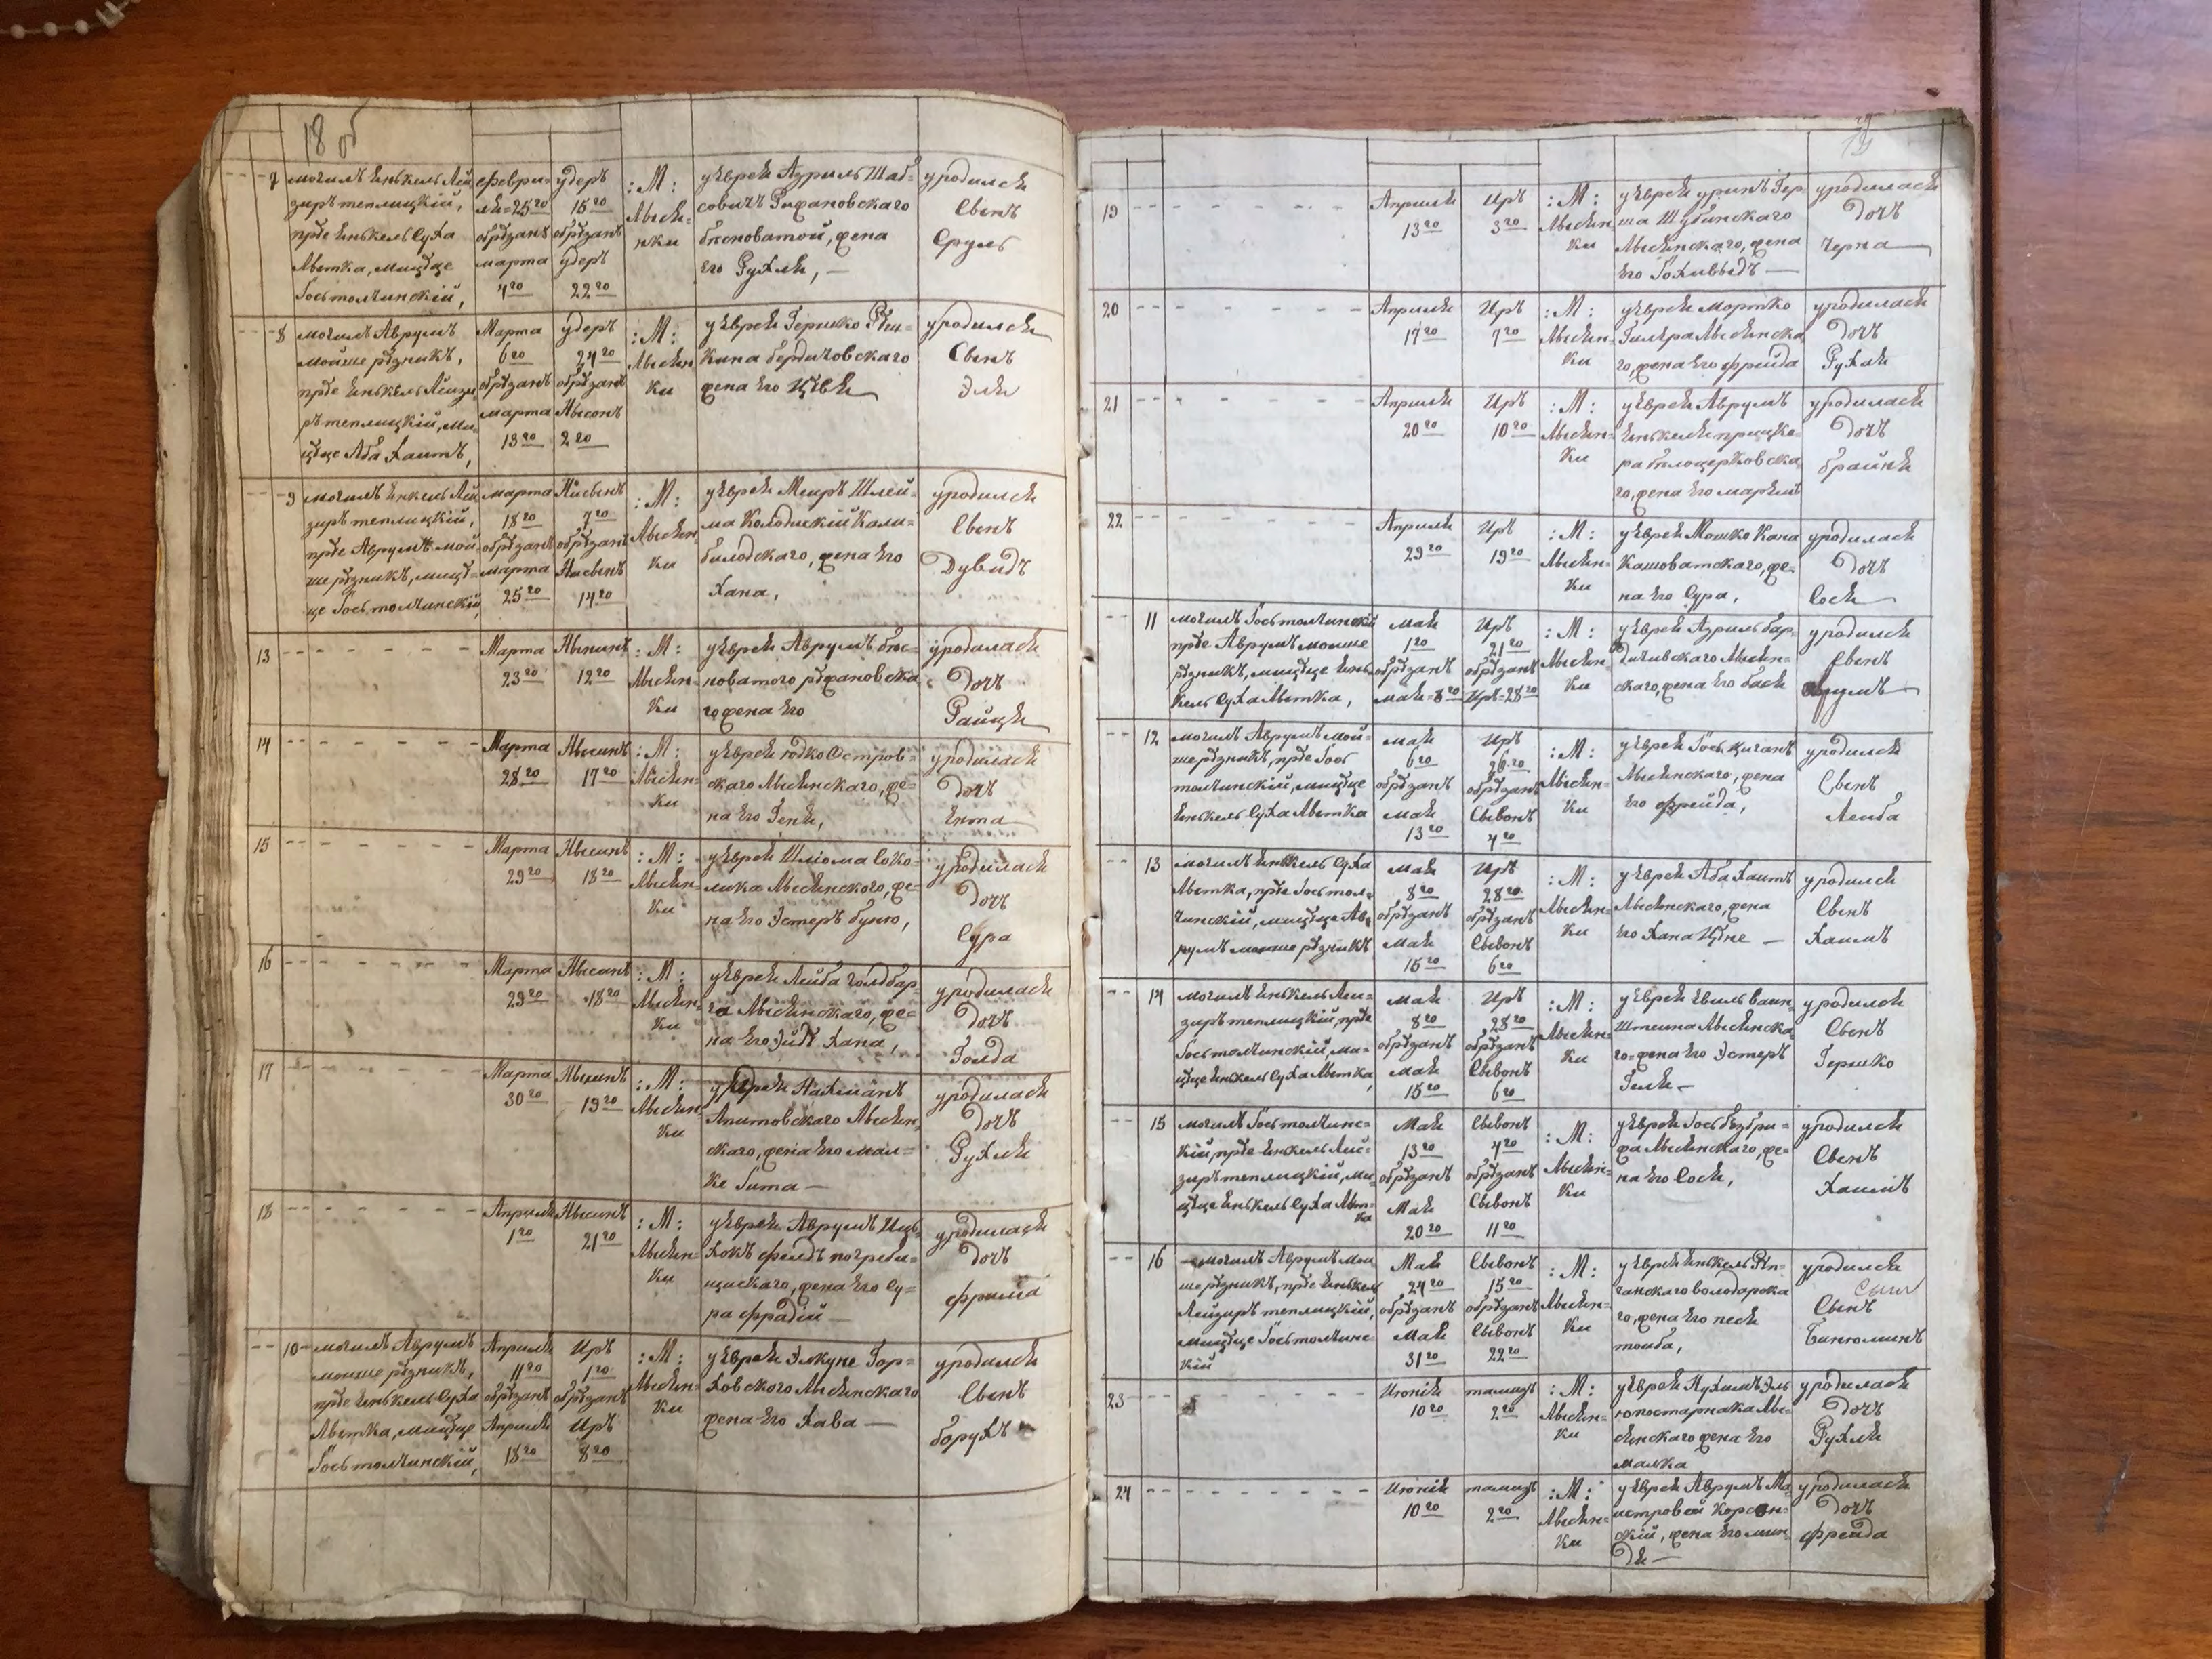 18 об
7
могилъ Енъкель Лей
зиръ теплицкій,
пріе Енъкель Суха
Лытка, мицъце
Госьтолчинскій,
феври=
ля=25го
обрѣзанъ
марта
4го
удеръ
15го
обрѣзанъ
удеръ
22го
:М:
Лысен=
нки
у Еврея Азриль Шаб=
совичъ Рифановскаго
бѣсноватой, жена
Его Рухля, —
уродился
Сынъ
Сруль
8
могилъ Аврумъ
мойше рѣзникъ,
пріе Енькель Лейзи
ръ теплицкій, ми=
цъце Аба Хаитъ,
Марта
6го
обрѣзанъ
марта
13го
удеръ
24го
обрѣзанъ
Нысонъ
2го
:М:
Лысен
ки
у Еврея Гершко
Кина бердичовскаго
жена Его Цѣвя
уродился
Сынъ
Эли
9
могилъ Енкель Лей
зиръ теплицкій,
пріе Аврумъ мой=
ше рѣзникъ, мицъ=
це Гось толчинскій,
марта
18го
обрѣзанъ
марта
25го
Нысынъ
7го
обрѣзанъ
Нысынъ
14го
:М:
Лысен=
ки
у Еврея Меиръ Шлей=
ма Колодискій Кали=
билодскаго, жена Его
Хана,
уродился
Сынъ
Дувидъ
13
Марта
23го
Нысинъ
12го
:М:
Лысен=
ки
у Еврея Аврумъ бѣс=
новатого рѣжановска
го жена Его
уродилася
дочъ
Райця
14
Марта
28го
Нысинъ
17го
:М:
Лысен=
ки
у Еврея Юдко Остров=
скаго Лысенскаго, же=
на Его Геня,
уродилася
дочъ
Ента
15
Марта
29го
Нысинъ
18го
:М:
Лысен=
ки
у Еврея Шліома Соко=
лика Лысенского, же=
на Его Эстеръ буню,
уродилася
дочъ
Сура
16
Марта
29го
Нысинъ
18го
:М:
Лысен=
ки
у Еврея Лейба Голдбар=
га Лысенскаго, же=
на Его Эйдѣ Хана,
уродилася
дочъ
Голда
17
Марта
30го
Нысинъ
19го
:М:
Лысен
ки
у Еврея Нахманъ
Апитовскаго Лысен
скаго, жена Его мал=
ке Гита —
уродилася
дочъ
Рухля
18
Априля
1го
Нысинъ
21го
:М:
Лысен=
ки
у Еврея Аврумъ Ицъ
Хокъ фелдъ погреби=
щискаго, жена Его Су=
ра фрадій —
уродилася
дочъ
фрима
10
могилъ Аврумъ
моише рѣзникъ,
пріе Енъкель Суха
Лытка, мицъце
Гось толчинскій,
Априля
11го
обрѣзанъ
Априля
18го
Иръ
1го
обрѣзанъ
Иръ
8го
:М:
Лысен=
ки
у Еврея Элкуне Гор=
ховского Лысенскаго
жена Его Хава —
уродился
Сынъ
борухъ
19
19
Априля
13го
Иръ
3го
:М:
Лысен
ки
у Еврея уринъ Гер
ша Шубинскаго
Лысенскаго, жена
Его
уродилася
дочъ
Черна
20
Априля
17го
Иръ
7го
:М:
Лысен=
ки
у Еврея Мортко
Гилера Лысенска
го, жена Его фрейда
уродилася
дочъ
Рухля
21
Априля
20го
Иръ
10го
:М:
Лысен=
ки
у Еврея Аврумъ
Енькеля прицке=
ра бѣлоцерковска
го, жена Его маръямъ
уродилася
дочъ
брайня
22
Априля
29го
Иръ
19го
:М:
Лысен=
ки
у Еврея Мошко Кана
Кашоватскаго, же=
на Его Сура,
уродилася
дочъ
Сося
11
могилъ Гось толчинскій
пріе Аврумъ моише
рѣзникъ, мицъце Ень
кель Суха Лытка,
Мая
1го
обрѣзанъ
мая=8го
Иръ
21го
обрѣзанъ
Иръ=28го
:М:
Лысен=
ки
у Еврея Азриль бар=
дичивскаго Лысен=
скаго, жена Его бася
уродился
Сынъ
12
могилъ Аврумъ мой=
ше рѣзникъ, пріе Гось
толчинскій, мицъце
Енькель Суха Лытка
мая
6го
обрѣзанъ
мая
13го
Иръ
26го
обрѣзанъ
Сывонъ
4го
:М:
Лысен=
ки
у Еврея Гось циганъ
Лысенскаго, жена
Его фрейда,
уродился
Сынъ
Леиба
13
могилъ Енькель Суха
Лытка, пріе Гось тол=
чинскій, мицъце Ав=
румъ моише рѣзникъ
мая
8го
обрѣзанъ
Мая
15го
Иръ
28го
обрѣзанъ
Сывонъ
6го
:М:
Лысен=
ки
у Еврея Аба Хаитъ
Лысенскаго, жена
Его Хана Цѣне —
уродился
Сынъ
Хаимъ
14
могилъ Енькель Леи=
зиръ теплицкій, пріе
Гось толчинскій, ми=
цъце Енькель Суха Лытка,
мая
8го
обрѣзанъ
мая
15го
Иръ
28го
обрѣзанъ
Сывонъ
6го
:М:
Лысен=
ки
у Еврея Евель Ваин
Штеина Лысенска
го=жена Его Эстеръ
Геля—
уродился
Сынъ
Гершко
15
могилъ Гось толчинс=
кій, пріе Енькель Лей=
зиръ теплицкій, ми=
цъце Енькель Суха Лыт=
ка
Мая
13го
обрѣзанъ
Мая
20го
Сывонъ
4го
обрѣзанъ
Сывонъ
11го
:М:
Лысен=
ки
у Еврея Гось бѣзбри=
жа Лысенскаго, же=
на Его Сося,
уродился
Сынъ
Хаимъ
16
могилъ Аврумъ мои
ше рѣзникъ, пріе Енькель
Лейзиръ теплицкій,
мицъце Гось толчинс
кій
Мая
24го
обрѣзанъ
Мая
31го
Сывонъ
15го
обрѣзанъ
Сывонъ
22го
:М:
Лысен=
ки
у Еврея Енькель Рѣп=
чанскаго володарска
го, жена Его песя
тоиба,
уродился
Сынъ
Сынъ
Бинюминъ
23
Июнія
10го
тамизъ
2го
:М:
Лысен=
ки
у Еврея Нухимъ Эль
ю постарнака Лы=
сенскаго жена Его
малка
уродилася
дочъ
Рухля
24
Июнія
10го
тамизъ
2го
:М:
Лысен=
ки
у Еврея Аврумъ Ма
истровой Корсон=
скій, жена Его мин
дя—
уродилася
дочъ
фрейда